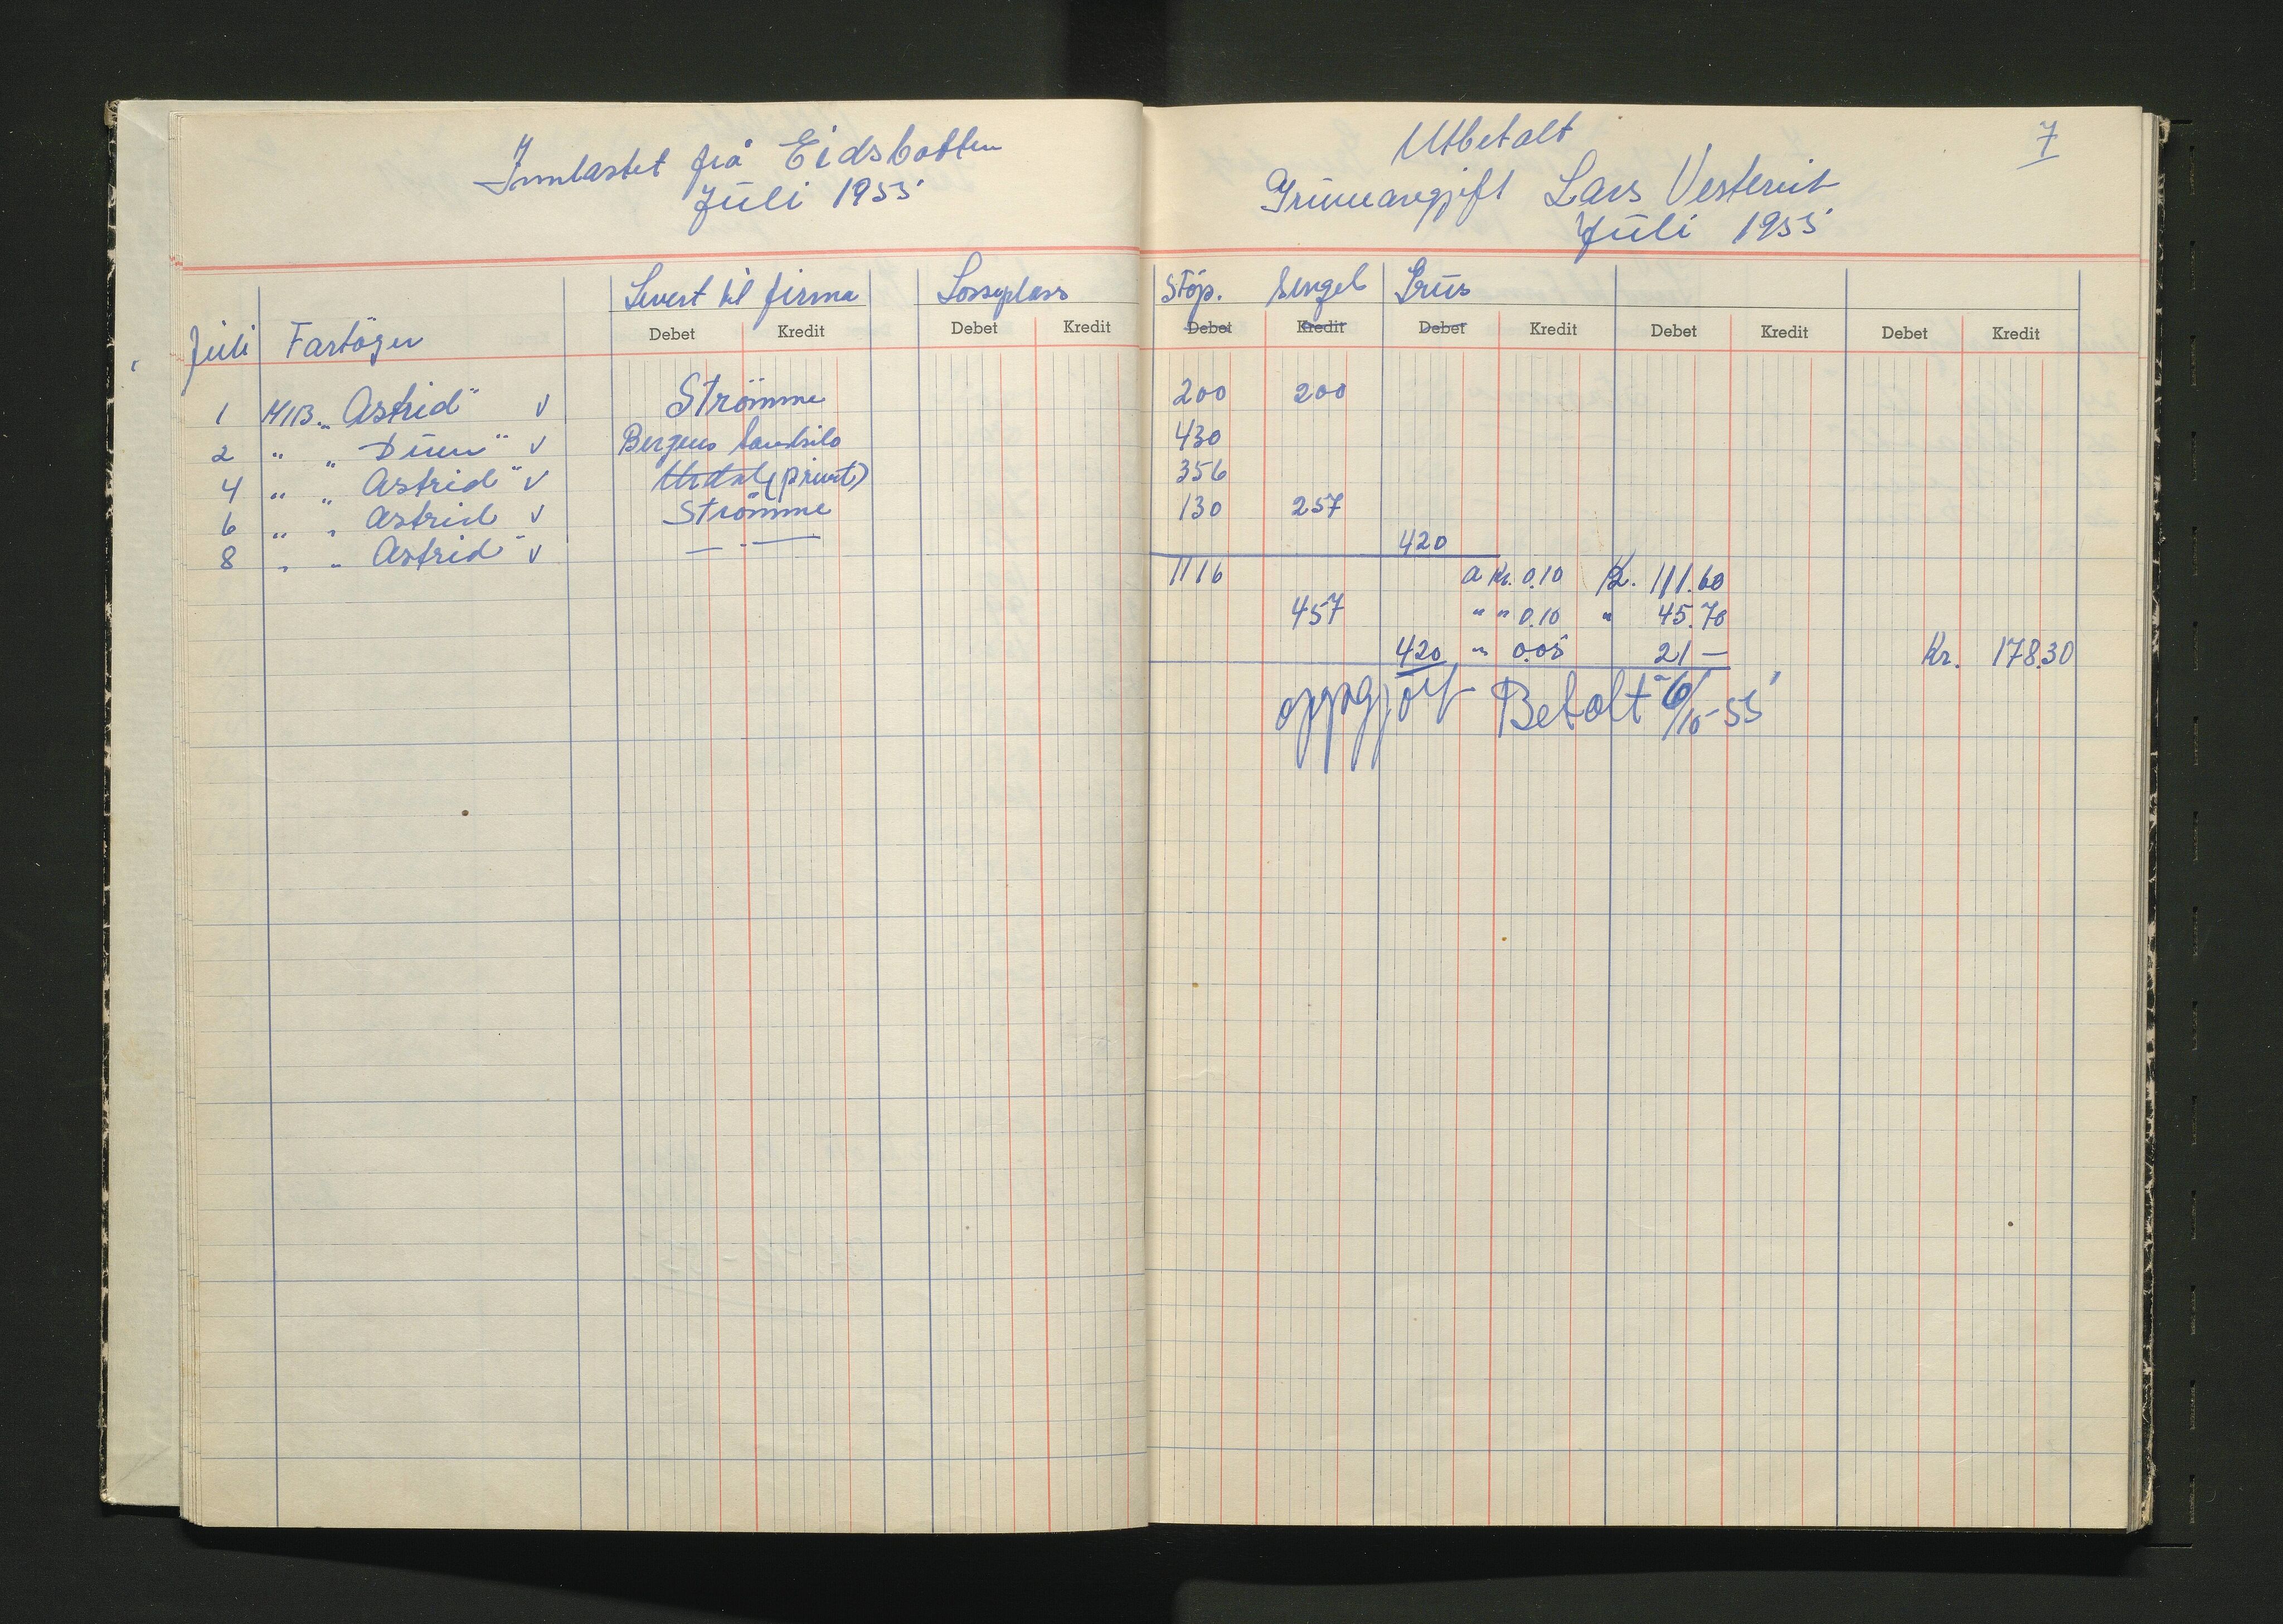 Innlastet frå Eidsbotten
Juli 1955
Utbetalt
7
Grunnavgjift Lars Vestervik
Juli 1955
Juli Fartöger
Levert til firma
Debet Kredit
Losseplass
Debet Kredit
Stöp. Singel Grus
Debet Kredit Debet Kredit Debet Kredit Debet Kredit
1 M/B „Astrid" v Strömme 200 200
2 " „Duen" v Bergens Sandsilo 430
4 " „Astrid" v (privat) 356
6 " „Astrid v Strömme 130 257
8 " „Astrid" v — " — 420
1116 a Kr. 0.10 Kr. 111.60
457 " " 0.10 " 45.70
420 " 0.05 21 — Kr. 178.30
oppgjort Betalt 6/10-55